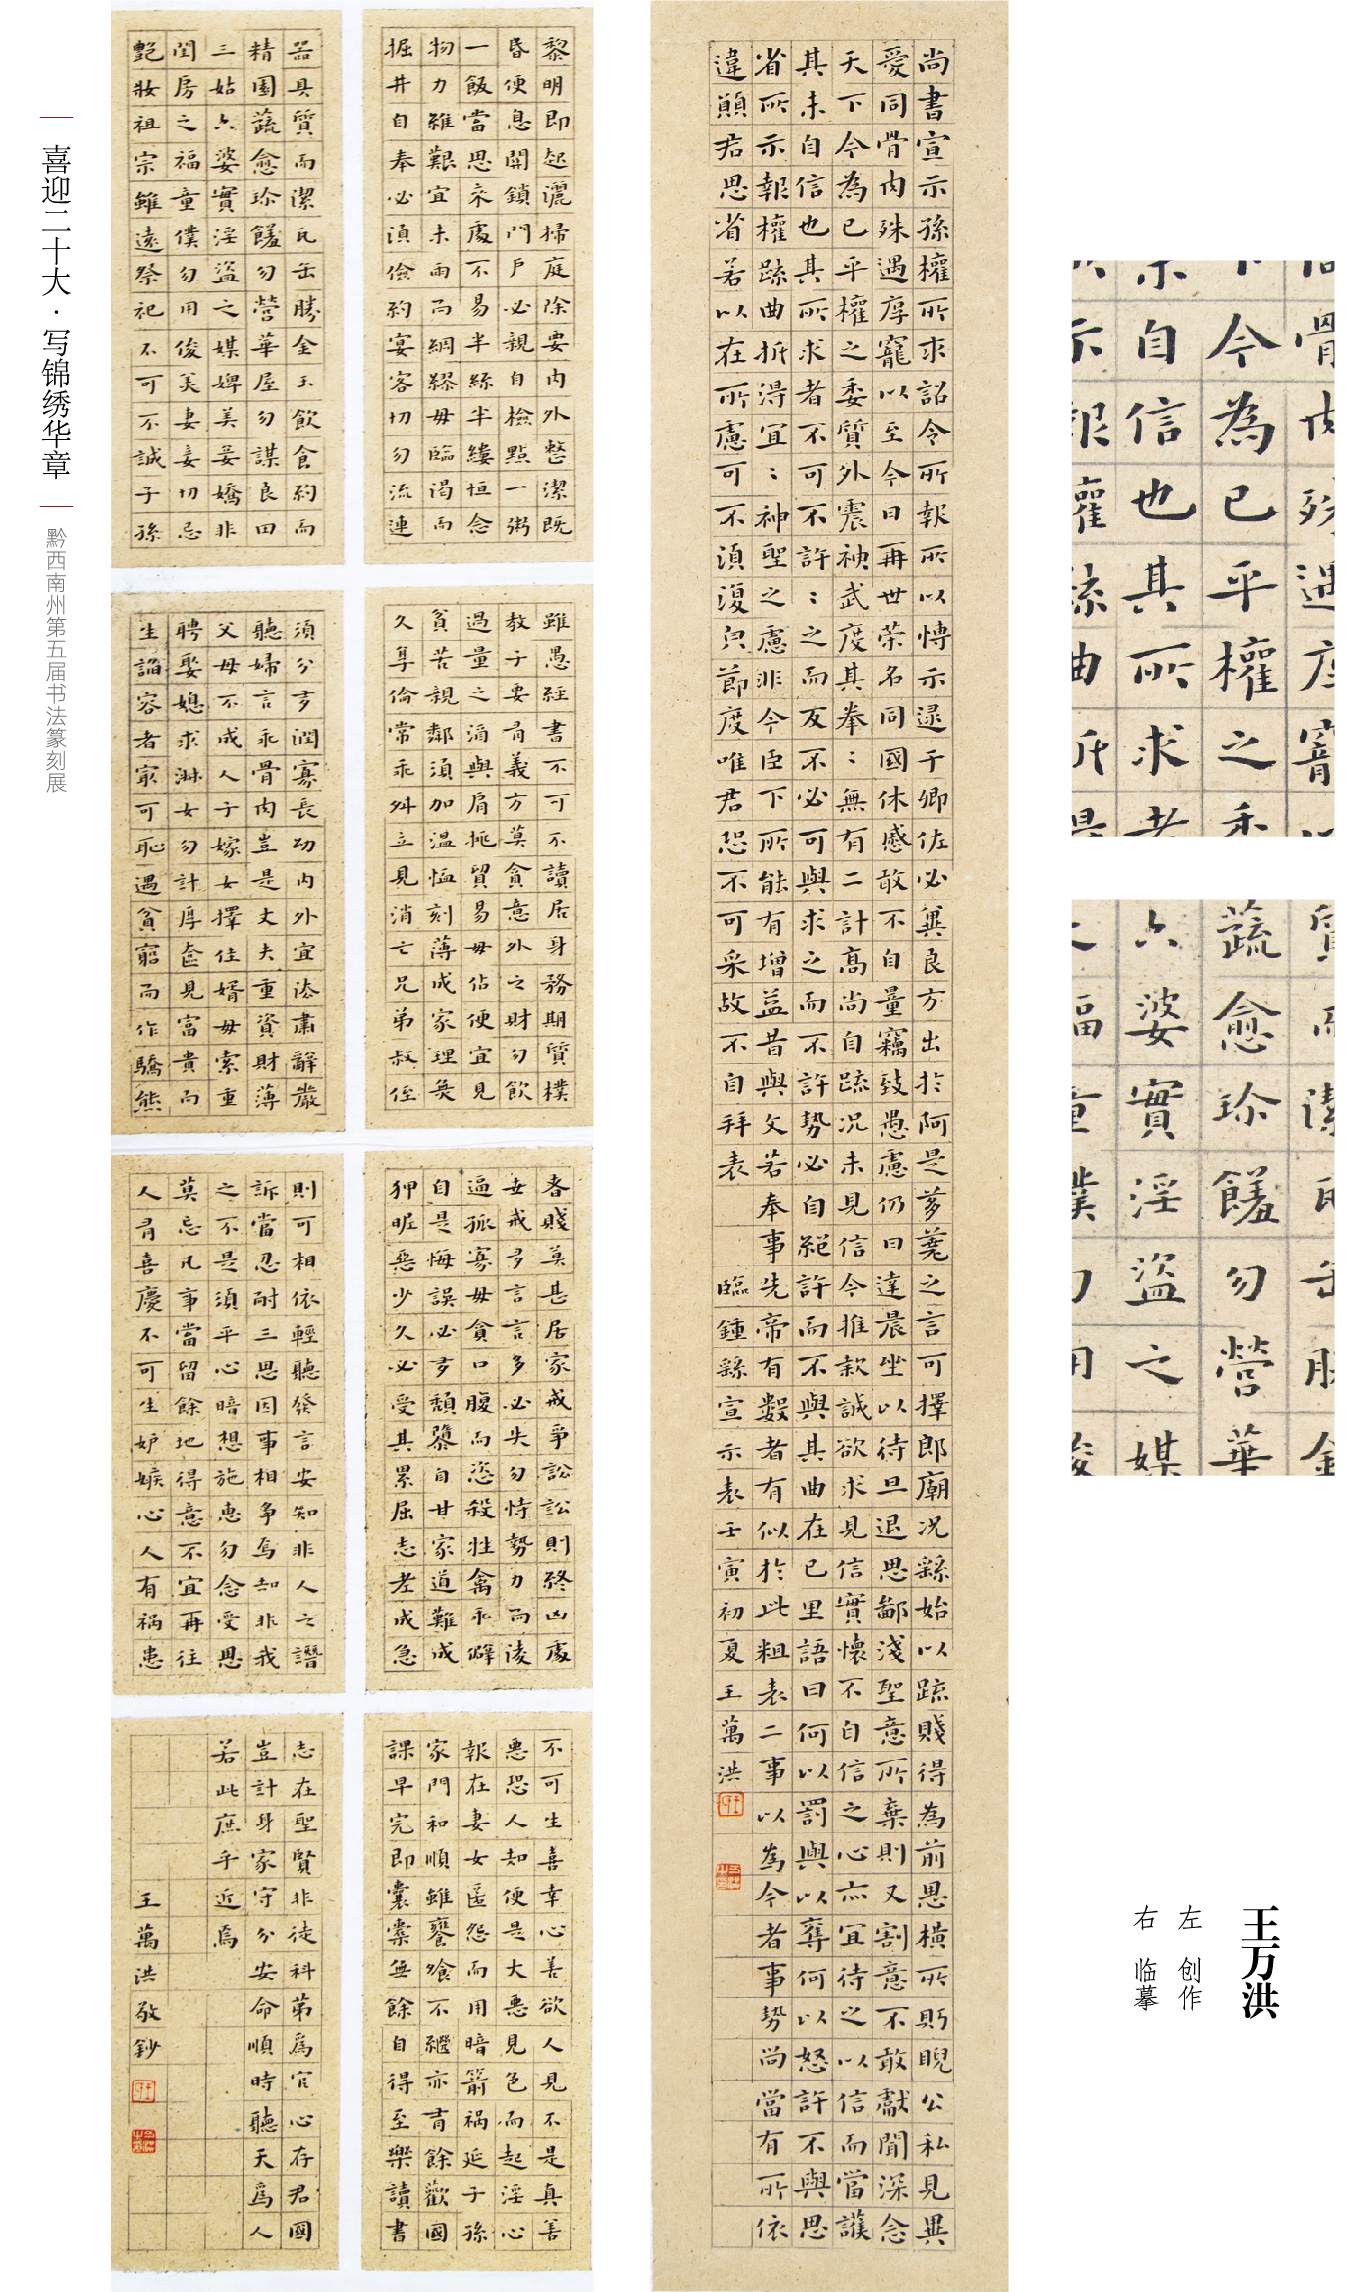 喜迎二十大·写锦绣华章
黔西南州第五届书法篆刻展
黎明即起灑掃庭除要内外整潔既
昏便息關鎖門戶必親自檢點一粥
一飯當思來處不易半絲半縷恒念
物力維艱宜未雨而綢繆毋臨渴而
掘井自奉必須儉約宴客切勿流連
器具質而潔瓦缶勝金玉飲食約而
精園蔬愈珍饈勿營華屋勿謀良田
三姑六婆實淫盜之媒婢美妾嬌非
閨房之福童僕勿用俊美妻妾切忌
艶妝祖宗雖遠祭祀不可不誠子孫
雖愚經書不可不讀居身務期質樸
教子要有義方莫貪意外之財勿飲
過量之酒與肩挑貿易毋佔便宜見
貧苦親鄰須加溫恤刻薄成家理無
久享倫常乖舛立見消亡兄弟叔侄
須分多潤寡長幼内外宜法肅辭嚴
聽婦言乖骨肉豈是丈夫重資財薄
父母不成人子嫁女擇佳婿毋索重
聘娶媳求淑女勿計厚奩見富貴而
生諂容者最可恥遇貧窮而作驕態
賤莫甚居家戒爭訟訟則終凶處
世戒多言言多必失勿恃勢力而凌
逼孤寡毋貪口腹而恣殺牲禽乖僻
自是悔誤必多頹墮自甘家道難成
狎昵惡少久必受其累屈志老成急
則可相依輕聽發言安知非人之譖
訴當忍耐三思因事相爭焉知非我
之不是須平心暗想施惠勿念受恩
莫忘凡事當留餘地得意不宜再往
人有喜慶不可生妒嫉心人有禍患
不可生喜幸心善欲人見不是真善
惡恐人知便是大惡見色而起淫心
報在妻女匿怨而用暗箭禍延子孫
家門和順雖饔飧不繼亦有餘歡國
課早完即囊橐無餘自得至樂讀書
志在聖賢非徒科第爲官心存君國
豈計身家守分安命順時聽天爲人
若此庶乎近焉
王萬洪敬鈔
尚書宣示孫權所求詔令所報所以博示逮于卿佐必冀良方出於阿是芻蕘之言可擇郎廟況繇始以疏賤得為前恩橫所眄睨公私見異
愛同骨肉殊遇厚寵以至今日再世榮名同國休慼敢不自量竊致愚慮仍日達晨坐以待旦退思鄙淺聖意所棄則又割意不敢獻聞深念
天下今為已平權之委質外震神武度其拳:無有二計高尚自疏況未見信今推款誠欲求見信實懷不自信之心亦宜待之以信而當護
其未自信也其所求者不可不許:之而反不必可與求之而不許勢必自絕許而不與其曲在己里語曰何以罰與以奪何以怒許不與思
省所示報權疏曲折得宜:神聖之慮非今臣下所能有增益昔與文若奉事先帝有數者有似於此粗表二事以為今者事勢尚當有所依
違願君思省若以在所慮可不須復皃節度唯君恐不可采故不自拜表
臨鍾繇宣示表壬寅初夏王萬洪
骨肉殊遇厚寵
今為已平權之委
自信也其所求者
示報權疏曲折得
質而潔瓦缶勝金
蔬愈珍饈勿營華
六婆實淫盜之媒
之福童僕勿用俊
王万洪
左 创作
右 临摹